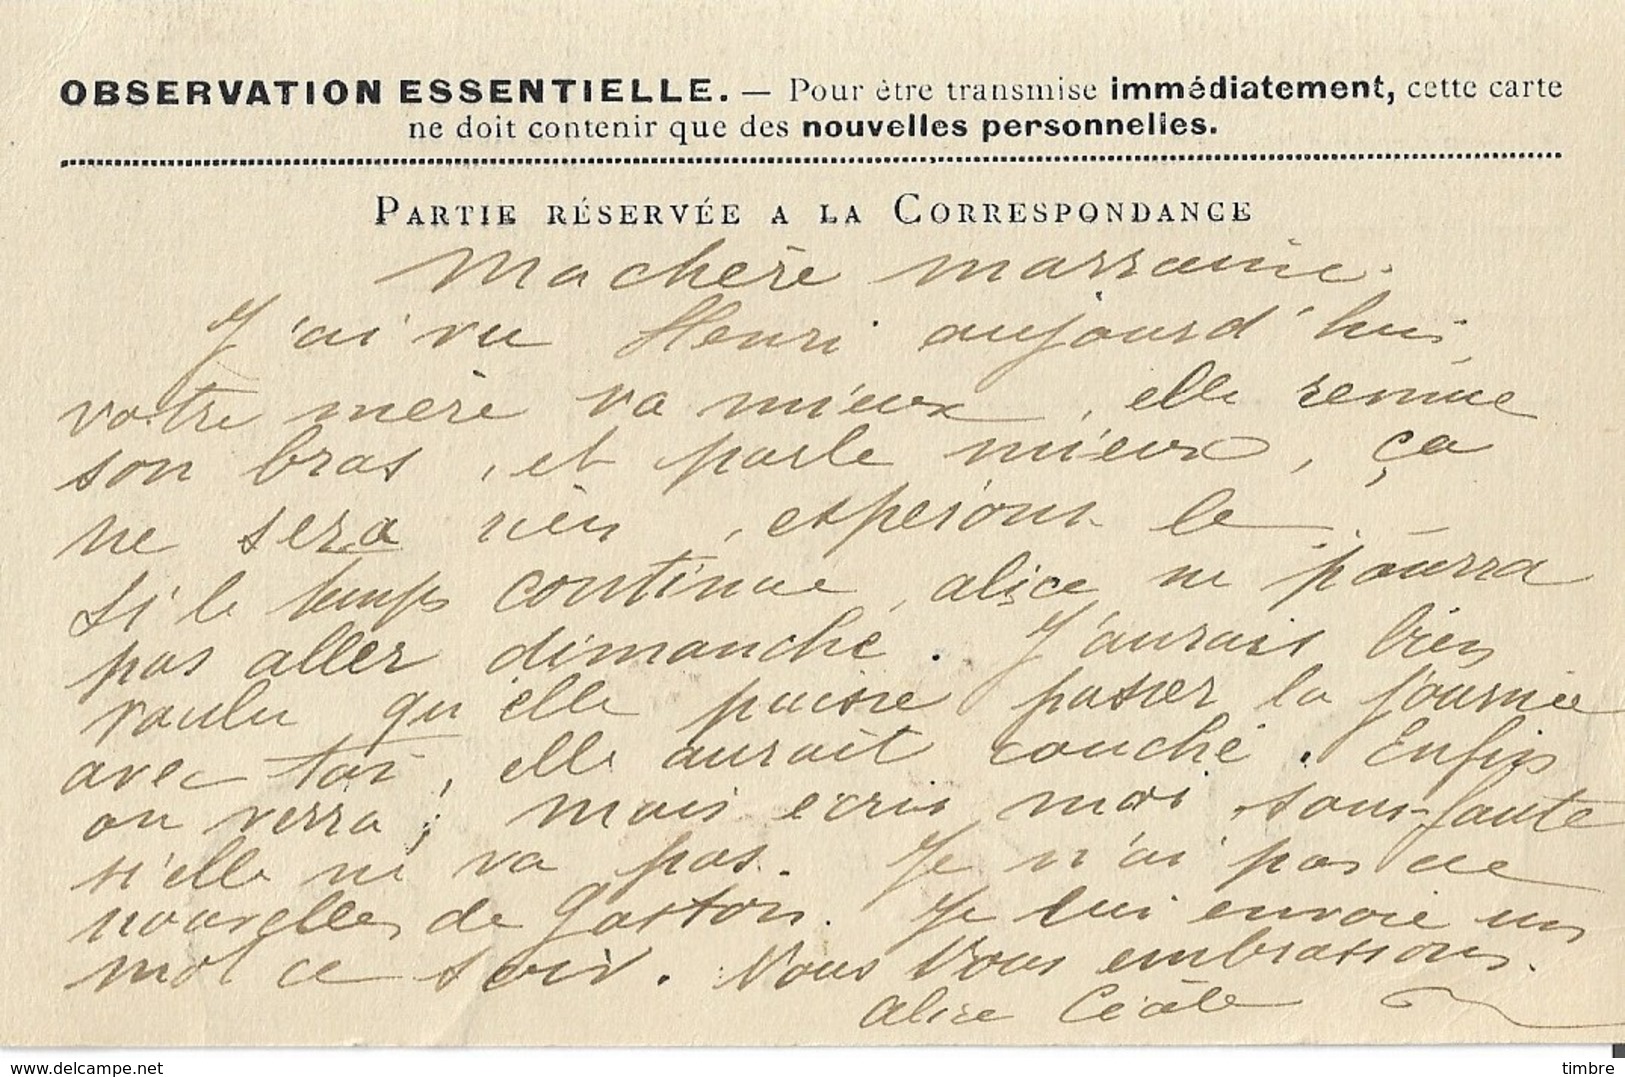 OBSERVATION ESSENTIELLE. — Pour être transmise immédiatement, cette carte
ne doit contenir que des nouvelles personnelles.
PARTIE RÉSERVÉE A LA CORRESPONDANCE
Ma chère marraine.
J'ai vu Henri aujourd'hui,
votre mère va mieux, elle remue
son bras, et parle mieux, ça
ne sera rien, espérons le.
Si le temps continue, alice ne pourra
pas aller dimanche. J'aurais bien
voulu qu'elle puisse passer la journée
avec toi, elle aurait couché. Enfin
on verra; mais écris moi sans-faute
si elle ne va pas. Je n'ai pas de
nouvelles de Gaston. Je lui envoie un
mot ce soir. Nous vous embrassons.
alice Cécile
delcampe.net
timbre